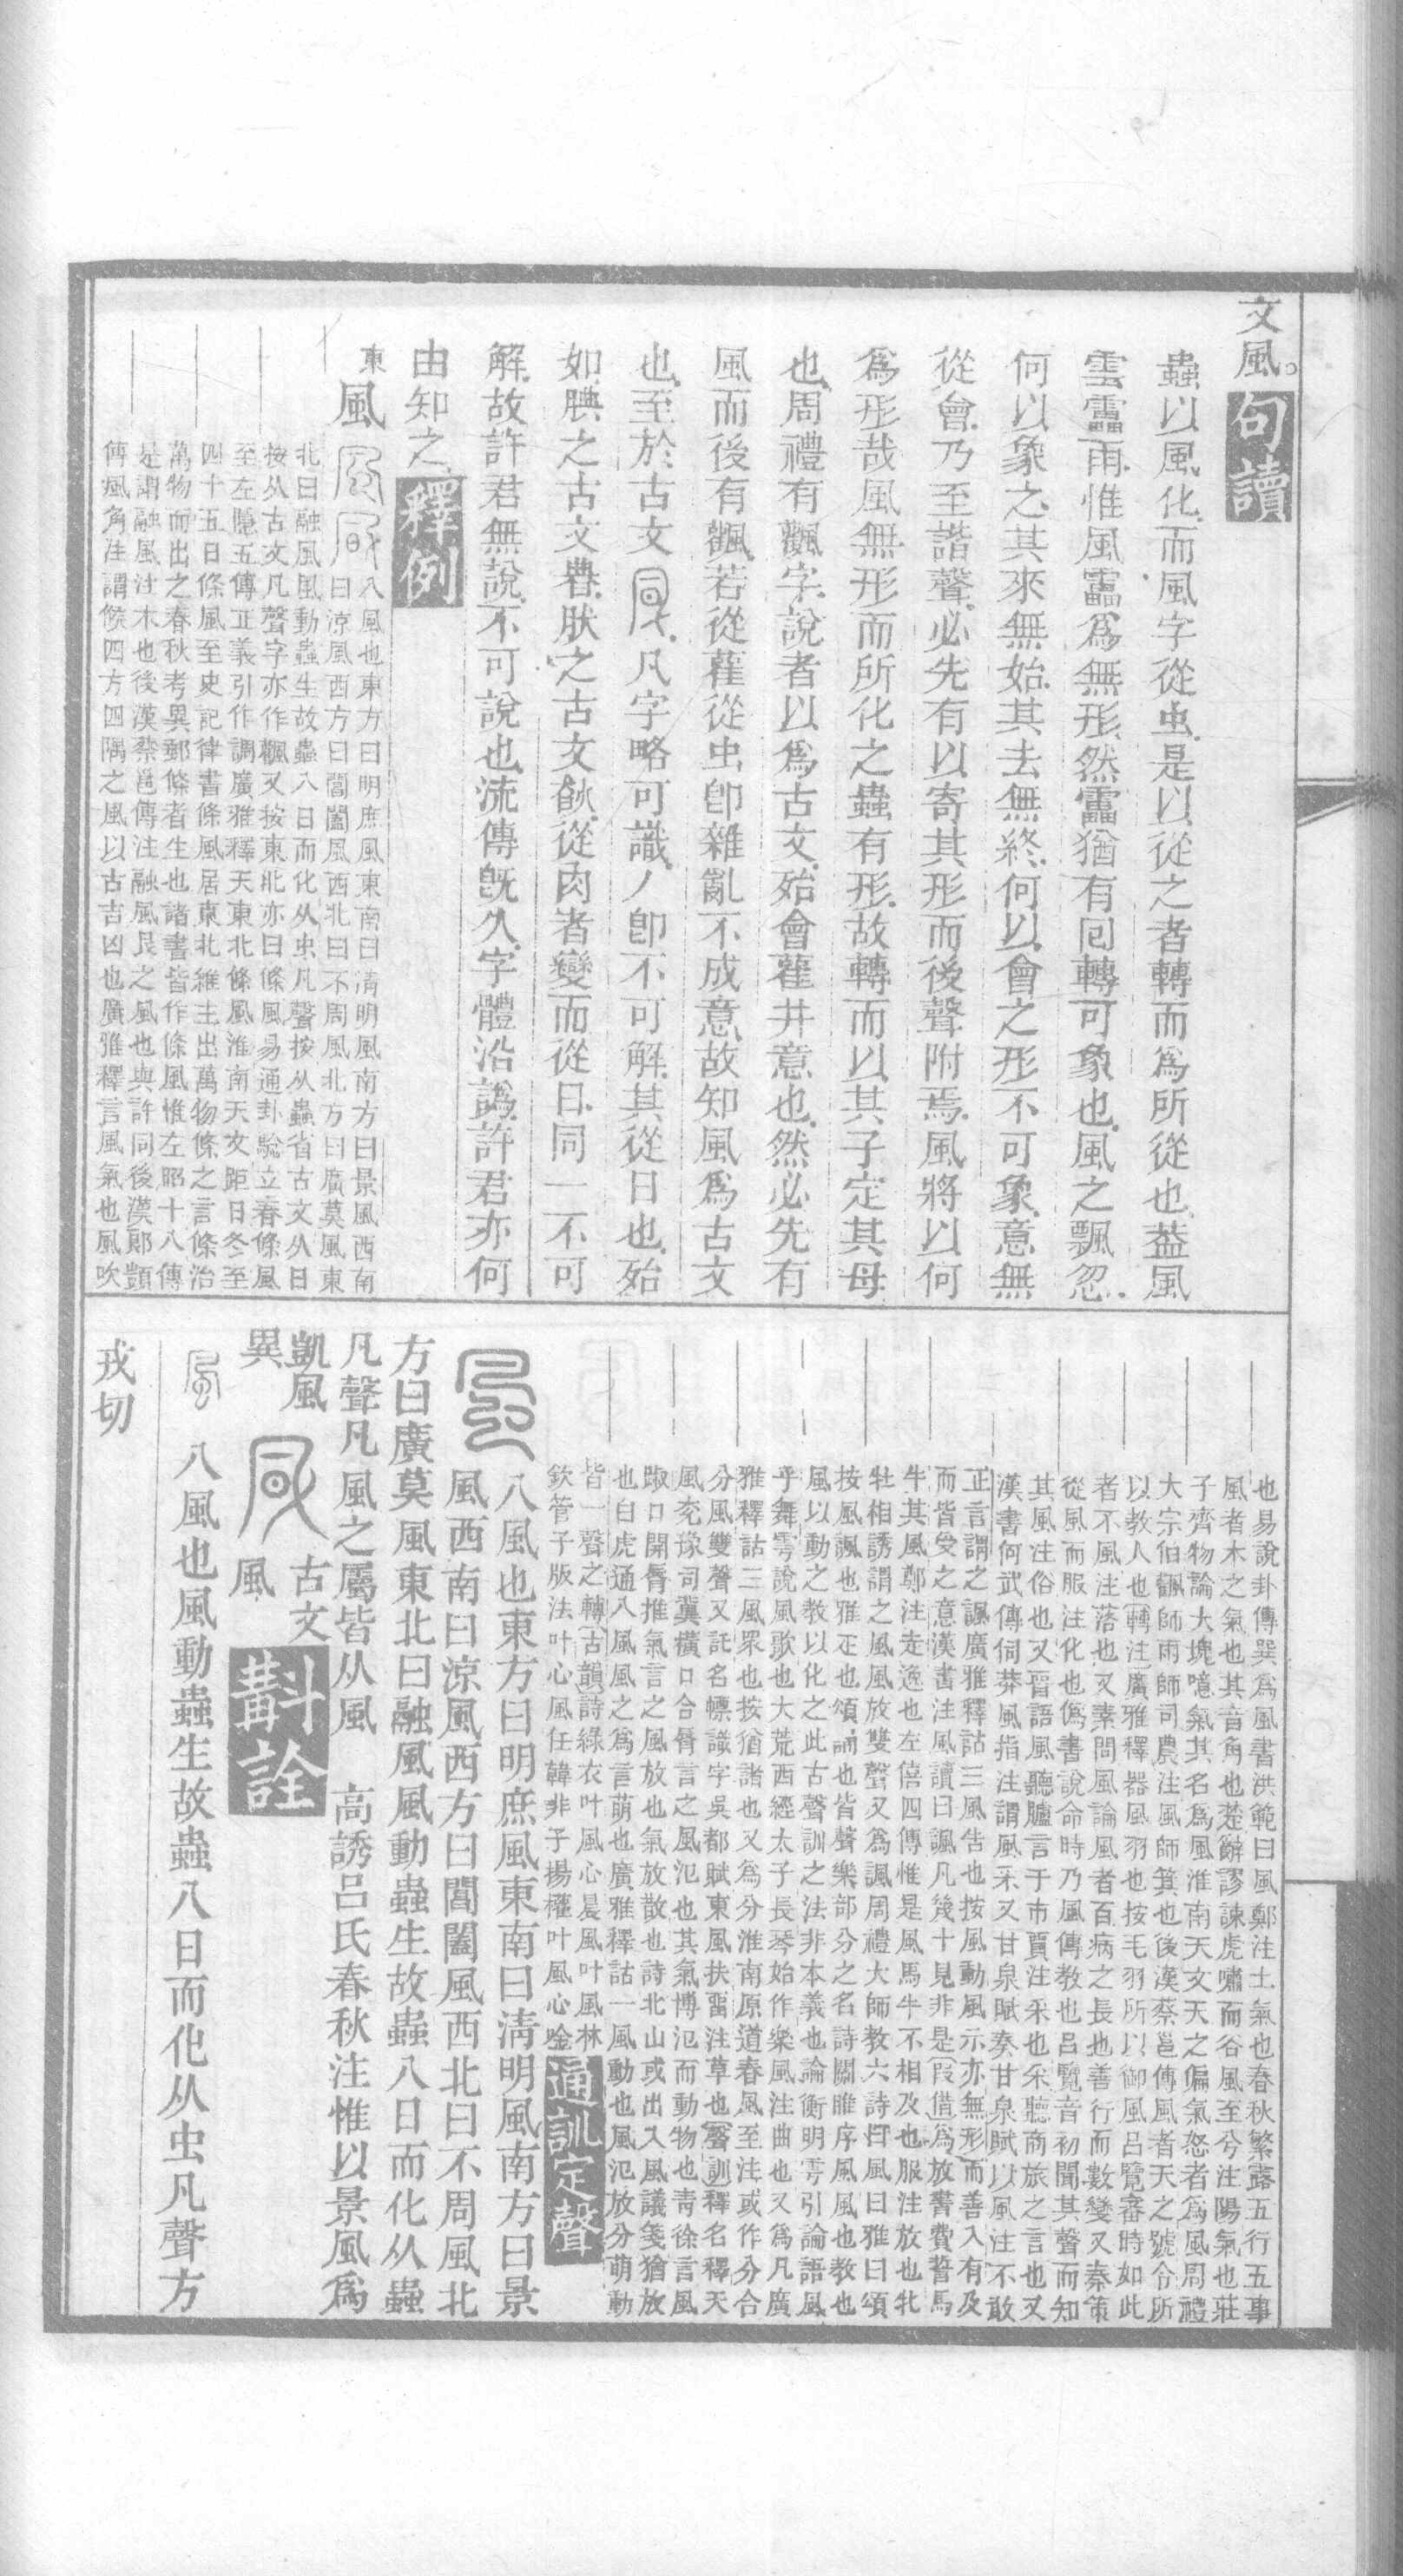 文風。句讀
蟲以風化而風字從虫是以從之者轉而爲所從也葢風
雲靁雨惟風靁爲無形然靁猶有回轉可象也風之飄忽
何以象之其來無始其去無終何以會之形不可象意無
從會乃至諧聲必先有以寄其形而後聲附焉風將以何
爲形哉風無形而所化之蟲有形故轉而以其子定其母
也周禮有飌字說者以爲古文始會雚井意也然必先有
風而後有飌若從雚從虫卽雜亂不成意故知風爲古文
也至於古文凡字略可識丿卽不可解其從日也殆
如腆之古文䏦之古文從肉者變而從日同一不可
解故許君無說不可說也流傳旣久字體沿譌許君亦何
由知之釋例
東風
八風也東方曰明庶風東南曰淸明風南方曰景風西南
曰涼風西方曰閶闔風西北曰不周風北方曰廣莫風東
北曰融風風動蟲生故蟲八日而化从虫凡聲按从蟲省古文从日
按从古文凡聲字亦作飌又按東北亦曰條風易通卦驗立春條風
至左隱五傳正義引作調廣雅釋天東北條風淮南天文距日冬至
四十五日條風至史記律書條風居東北維主出萬物條之言條治
萬物而出之春秋考異郵條者生也諸書皆作條風惟左昭十八傳
是謂融風注木也後漢蔡邕傳注融風艮之風也與許同後漢郞顗
傳風角注謂候四方四隅之風以占吉凶也廣雅釋言風氣也風吹
也易說卦傳巽爲風書洪範曰風鄭注土氣也春秋繁露五行五事
風者木之氣也其音角也楚辭謬諫虎嘯而谷風至兮注陽氣也莊
子齊物論大塊噫氣其名爲風淮南天文天之偏氣怒者爲風周禮
大宗伯飌師雨師司農注風師箕也後漢蔡邕傳風者天之號令所
以敎人也轉注廣雅釋器風羽也按毛羽所以御風呂覽審時如此
者不風注落也又素問風論風者百病之長也善行而數變又秦策
從風而服注化也僞書說命時乃風傳敎也呂覽音初聞其聲而知
其風注俗也又晉語風聽臚言于市賈注采也采聽商旅之言也又
漢書何武傳伺莽風指注謂風采又甘泉賦奏甘泉賦以風注不敢
正言謂之諷廣雅釋詁三風告也按風動風示亦無形而善入有及
而皆受之意漢書注風讀曰諷凡幾十見非是假借爲放書費誓馬
牛其風鄭注走逸也左僖四傳惟是風馬牛不相及也服注放也牝
牡相誘謂之風風放雙聲又爲諷周禮大師敎六詩曰風曰雅曰頌
按風諷也雅正也頌誦也皆聲樂部分之名詩關雎序風風也敎也
風以動之敎以化之此古聲訓之法非本義也論衡明雩引論語風
乎舞雩說風歌也大荒西經太子長琴始作樂風注曲也又爲凡廣
雅釋詁三風眾也按猶諸也又爲分淮南原道春風至注或作分合
分風雙聲又託名幖識字吳都賦東風扶畱注草也聲訓釋名釋天
風兗豫司冀橫口合脣言之風氾也其氣博氾而動物也靑徐言風
踧口開脣推氣言之風放也氣放散也詩北山或出入風議箋猶放
也白虎通八風風之爲言萌也廣雅釋詁一風動也風氾放分萌動
皆一聲之轉古韻詩綠衣叶風心晨風叶風林
欽管子版法叶心風任韓非子揚權叶風心唫通訓定聲
八風也東方曰明庶風東南曰淸明風南方曰景
風西南曰涼風西方曰閶闔風西北曰不周風北
方曰廣莫風東北曰融風風動蟲生故蟲八日而化从蟲
凡聲凡風之屬皆从風　高誘呂氏春秋注惟以景風爲
凱風
異古文
風斠詮
八風也風動蟲生故蟲八日而化从虫凡聲方
戎切